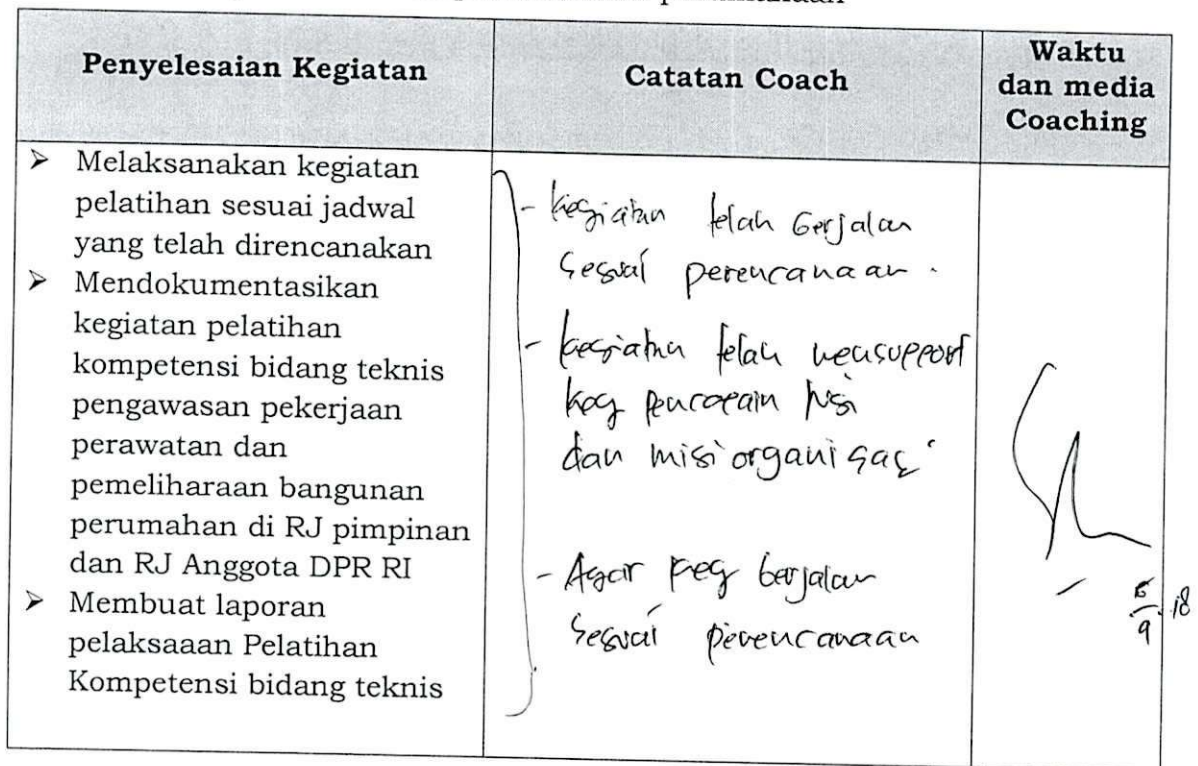 Penyelesaian Kegiatan
Catatan Coach
Waktu
dan media
Coaching
➢ Melaksanakan kegiatan
pelatihan sesuai jadwal
yang telah direncanakan
➢ Mendokumentasikan
kegiatan pelatihan
kompetensi bidang teknis
pengawasan pekerjaan
perawatan dan
pemeliharaan bangunan
perumahan di RJ pimpinan
dan RJ Anggota DPR RI
➢ Membuat laporan
pelaksaaan Pelatihan
Kompetensi bidang teknis
- kegiatan telah berjalan
sesuai perencanaan.
- kegiatan telah mensupport
keg pencapain visi
dan misi organisasi
- Agar keg berjalan
sesuai perencanaan
6/9 18